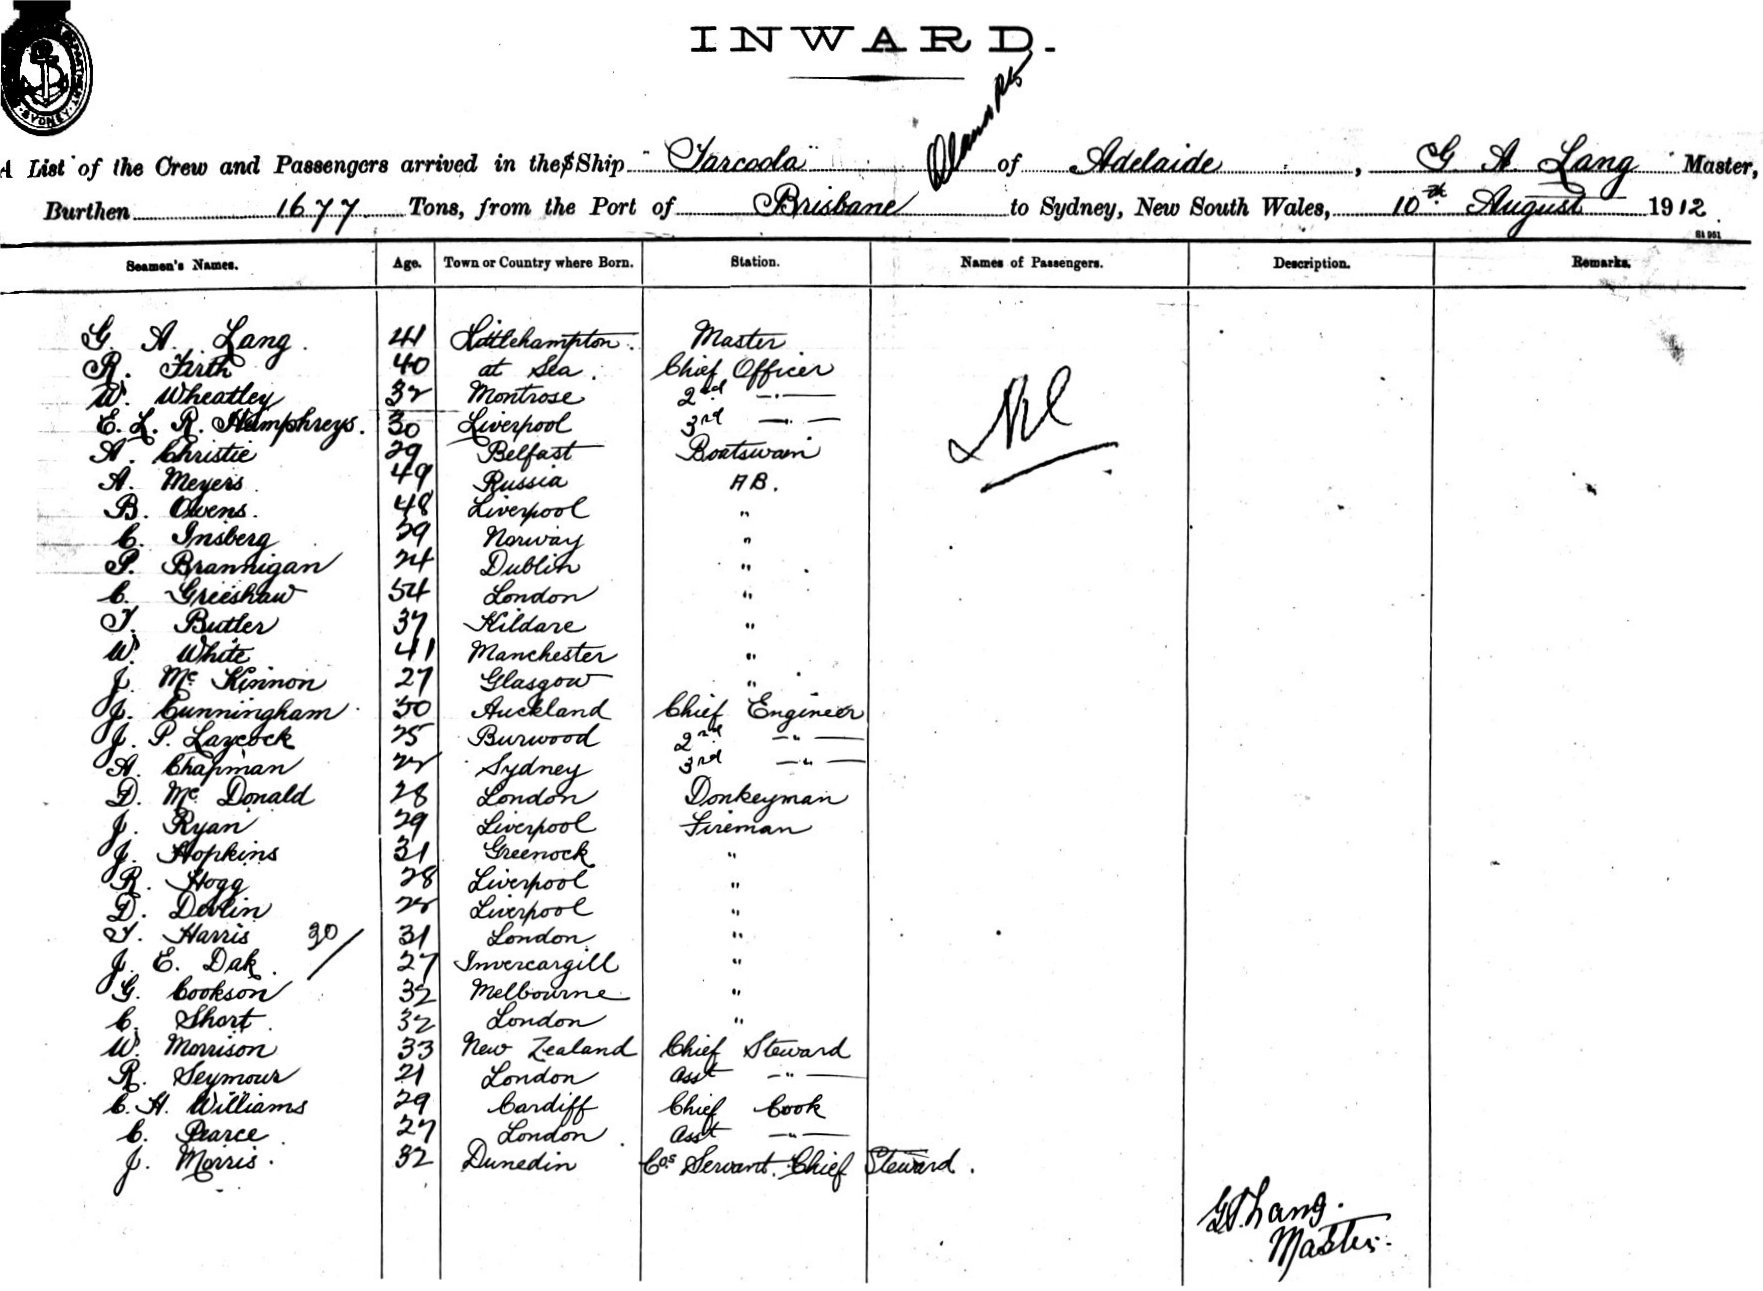 INWARD.
SYDNEY
A List of the Crew and Passengers arrived in the S Ship "Tarcoola" of Adelaide, G. A. Lang Master,
Burthen 1677 Tons, from the Port of Brisbane to Sydney, New South Wales, 10th August 1912
Seamen's Names. Age. Town or Country where Born. Station. Names of Passengers. Description. Remarks.
G. A. Lang. 41 Littlehampton. Master
R. Firth 40 at Sea. Chief Officer
W. Wheatley 32 Montrose 2nd —"—
E. L. R. Humphreys. 30 Liverpool 3rd —"—
Nil
A. Christie 29 Belfast Boatswain
A. Meyers. 49 Russia AB.
B. Owens. 48 Liverpool "
C. Insberg 29 Norway "
P. Brannigan 24 Dublin "
C. Greeshaw 54 London "
T. Butler 37 Kildare "
W. White 41 Manchester "
J. McKinnon 27 Glasgow "
J. Cunningham 50 Auckland Chief Engineer
J. P. Laycock 25 Burwood 2nd —"—
A. Chapman Sydney 3rd —"—
D. McDonald 28 London Donkeyman
J. Ryan 29 Liverpool Fireman
J. Hopkins 31 Greenock "
R. Hogg 28 Liverpool "
D. Devlin Liverpool "
T. Harris 30 31 London "
J. E. Dak. 27 Invercargill "
G. Cookson 32 Melbourne "
C. Short. 32 London "
W. Morrison 33 New Zealand Chief Steward
R. Seymour 21 London Asst —"—
C. H. Williams 29 Cardiff Chief Cook
C. Pearce. 27 London. Asst —"—
J. Morris. 32 Dunedin Cos Servant. Chief Steward.
G A Lang.
Master.